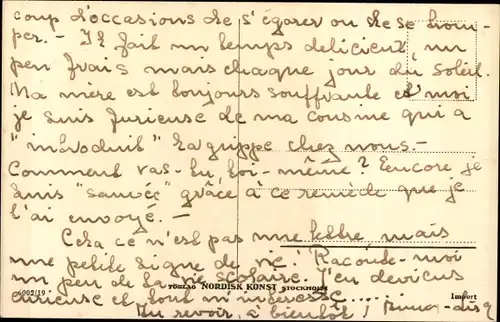 coup d'occasions de s'égarer ou de se trom-
per. - Il fait un temps délicieux, un
peu frais mais chaque jour du soleil.
Ma mère est toujours souffrante et moi
je suis furieuse de ma cousine qui a
"introduit" la grippe chez nous. -
Comment vas-tu, toi-même? Encore je
suis "sauvée" grâce à ce remède que je
t'ai envoyé. -
Cela ce n'est pas une lettre, mais
une petite signe de vie! Raconte-moi
un peu de la vie scolaire. J'en deviens
curieuse et tout m'intéresse....
Au revoir, à bientôt!
6002/19
FÖRLAG NORDISK KONST STOCKHOLM
Import